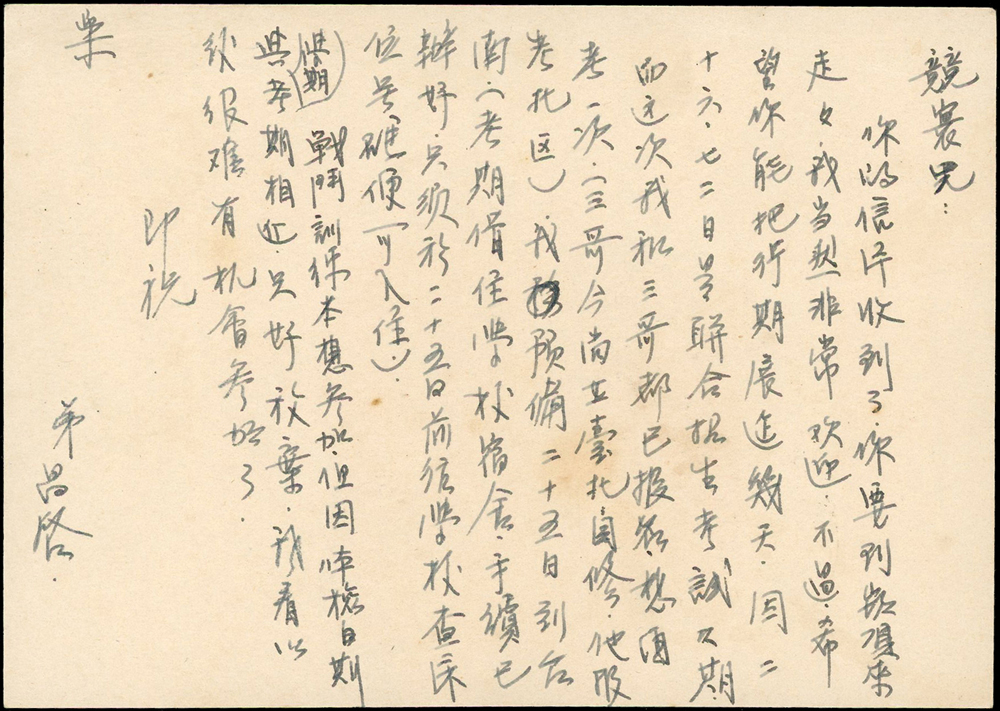 競寰兄:
你的信片收到了.你要到崁頂來
走々.我当然非常欢迎.不過.希
望你能把行期展迄幾天.因二
十六.七二日是聯合招生考試之期
而这次我和三哥都已报名.想再
考一次.(三哥今尚在臺北自修.他服
考北区).我預備二十五日到台
南.(考期借住學校宿舍.手續已
辦好.只須於二十五日前往學校查床
位号碼便可入住).
(暑期)戰鬥訓練本想參加.但因体檢日期
與考期相近.只好放棄.我看以
後很難有机會參加了.
即祝
樂
弟
昌啓.